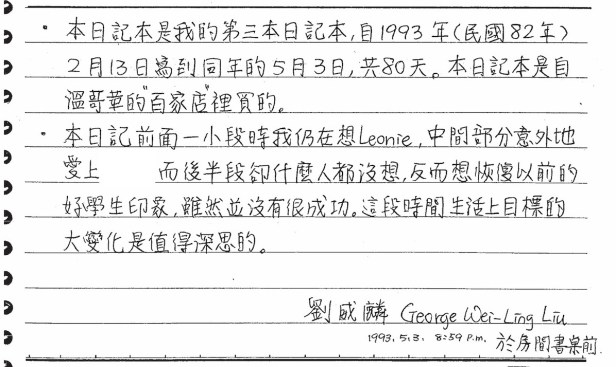 ・本日記本是我的第三本日記本,自1993年(民國82年)
2月13日寫到同年的5月3日,共80天。本日記本是自
溫哥華的"百家店"裡買的。
・本日記前面一小段時我仍在想Leonie,中間部分意外地
愛上 而後半段卻什麼人都沒想,反而想恢復以前的
好學生印象,雖然並沒有很成功。這段時間生活上目標的
大變化是值得深思的。
劉威麟 George Wei-Ling Liu
1993.5.3. 8:59 P.m. 於房間書桌前.